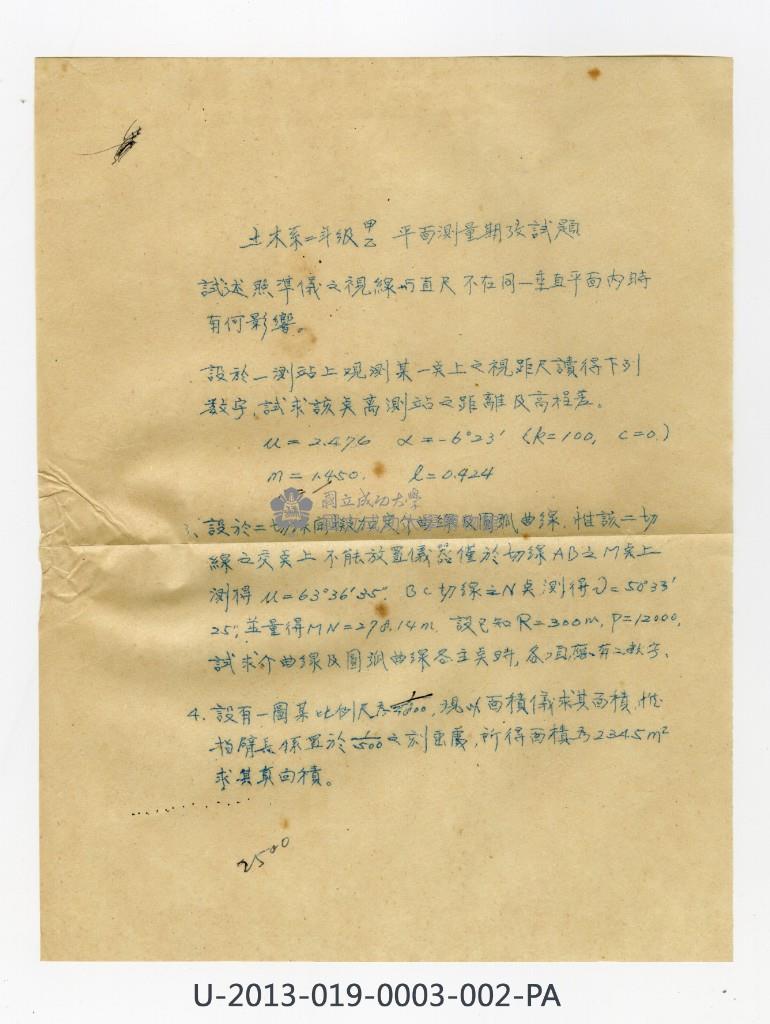 土木系二年級甲乙 平面測量期考試題
試述照準儀之視線与直尺不在同一垂直平面內時
有何影響。
設於一測站上观測某一奌上之視距尺讀得下列
数字,試求該奌离測站之距離及高程差。
u = 2.476 α = -6°23′ (k=100, c=0.)
m = 1.450. l = 0.424
國立成功大學
3、設於二切線間 介曲線及圓弧曲線,惟該二切
線之交奌上不能放置儀器僅於切線AB之M奌上
測得 u=63°36′35″. BC切線之N奌測得 υ=50°33′
25″,並量得MN=278.14m. 設已知R=300m, P=12000,
試求介曲線及圓弧曲線各主奌時,各
4. 設有一圖其比例尺為 現以面積儀求其面積,惟
指臂長係置於1/500之刻 處,所得面積為2345m²
求其真面積。
2500
U-2013-019-0003-002-PA